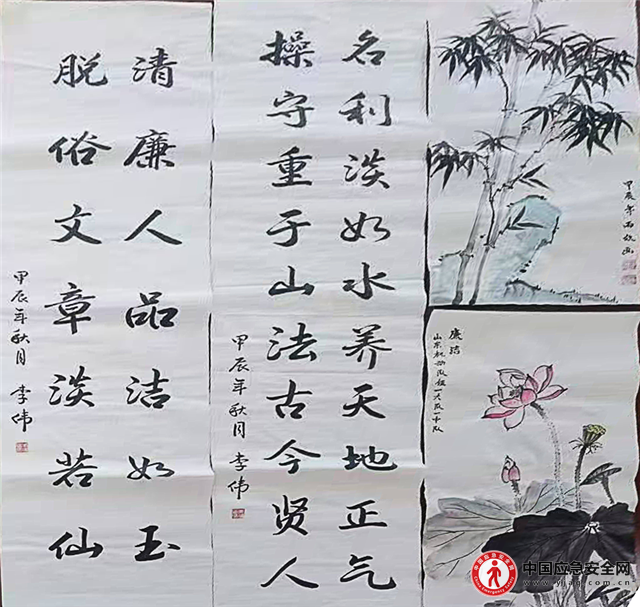 清廉人品洁如玉
脱俗文章淡若仙
甲辰年秋月 李伟
名利淡如水养天地正气
操守重于山法古今贤人
甲辰年秋月 李伟
甲辰年
廉洁
中国应急安全网
www.yjaq.com.cn